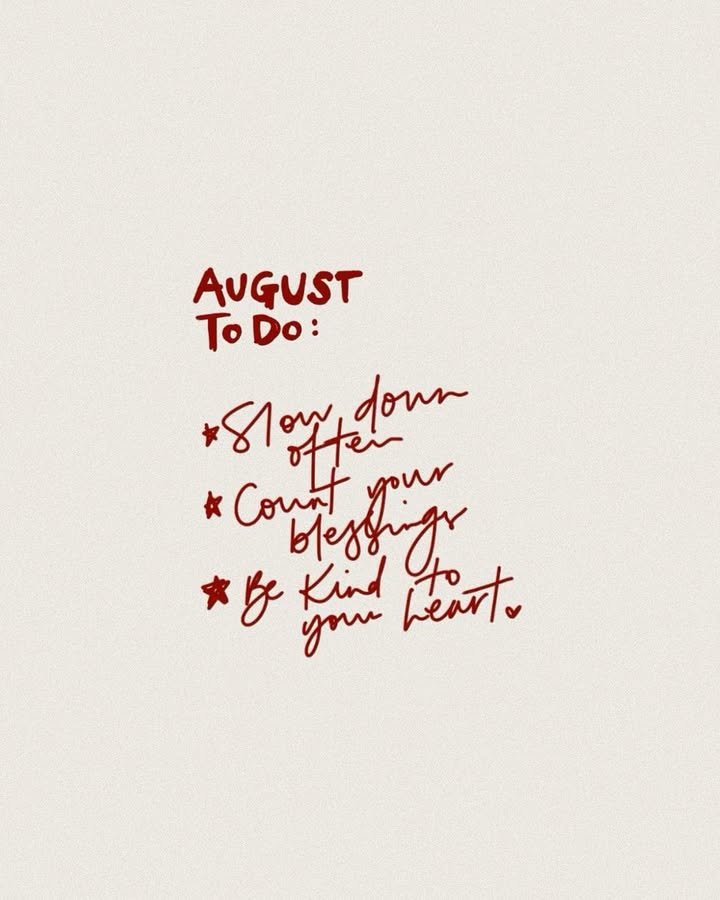 AUGUST
To Do:
Slow down
often
Count your
blessings
Be Kind to
your heart.